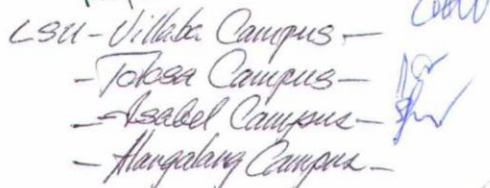 LSU - Villaba Campus -
- Tolosa Campus -
- Isabel Campus -
- Alangalang Campus -